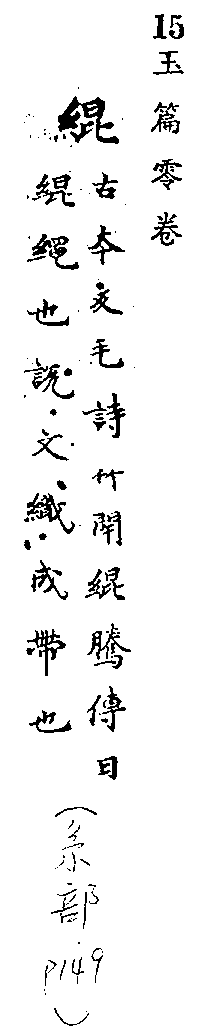 15 玉篇零卷
緄 古本反毛詩竹閇緄騰傳曰
緄繩也説文織成帶也
(糸部 P149)